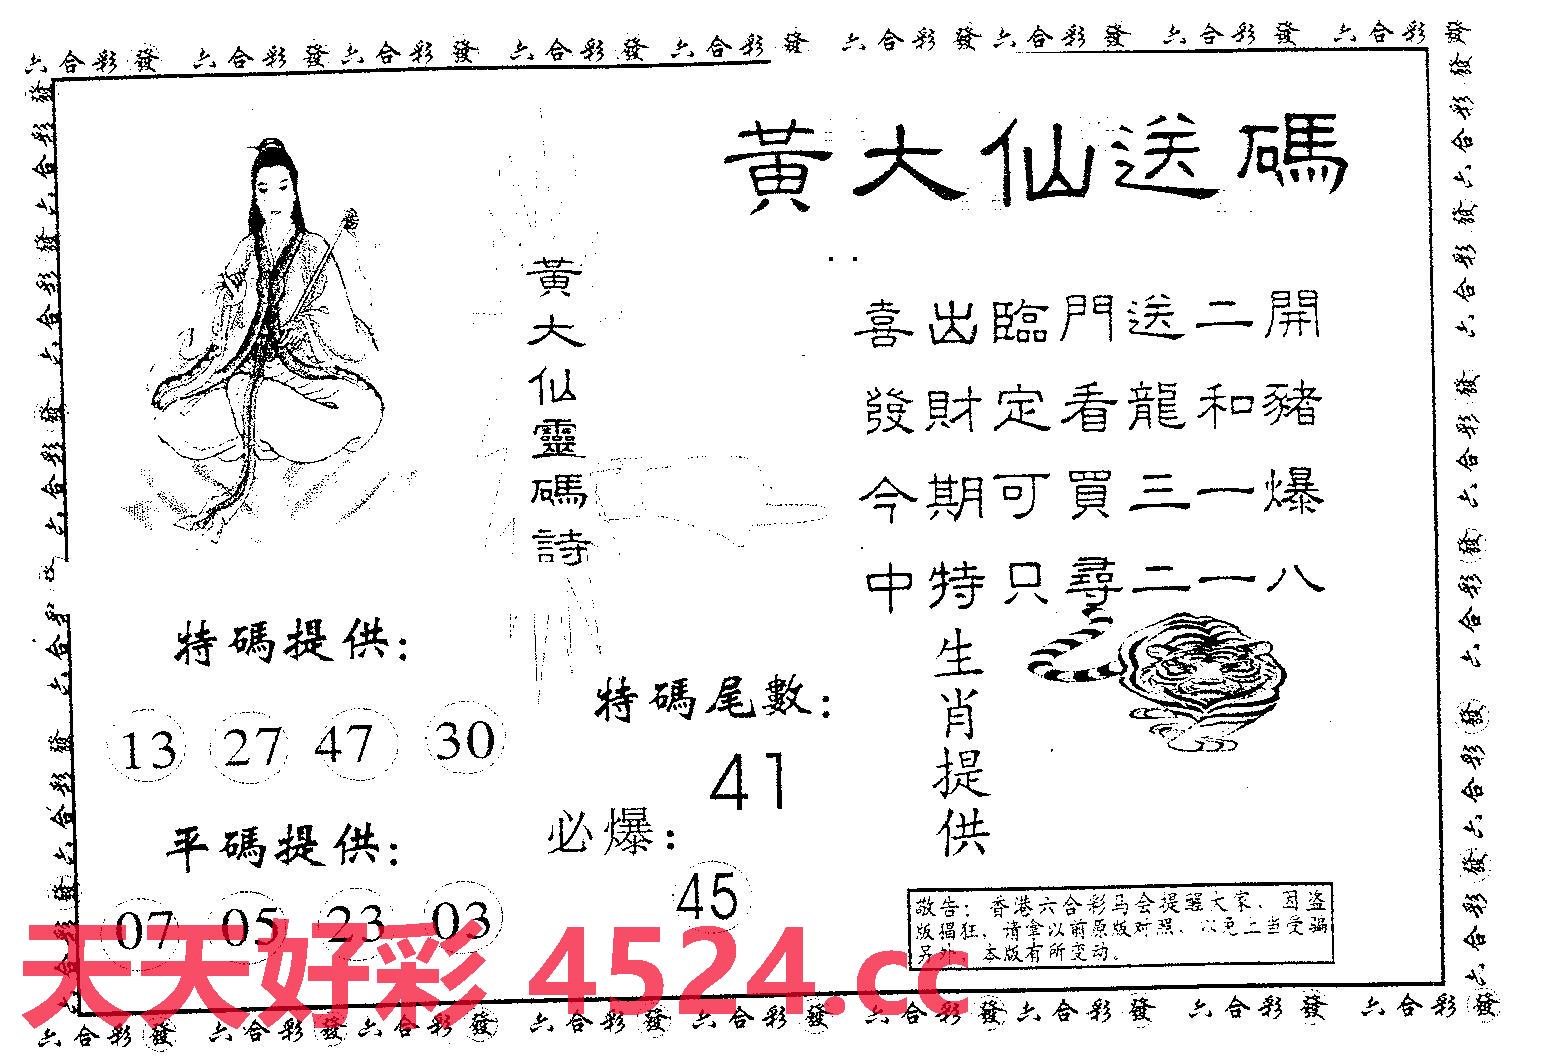 六合彩發 六合彩發六合彩發 六合彩發六合彩發 六合彩發六合彩發 六合彩發 六合彩發
黃大仙送碼
黃大仙靈碼詩
喜出臨門送二開
發財定看龍和豬
今期可買三一爆
中特只尋二一八
特碼提供:
13 27 47 30
平碼提供:
07 05 23 03
特碼尾數:
41
必爆:
45
生肖提供
敬告:香港六合彩马会提醒大家、因盗
版猖狂、请拿以前原版对照、以免上当受骗
另外、本版有所变动。
天天好彩 4524.cc
六合彩發 六合彩發六合彩發 六合彩發六合彩發 六合彩發六合彩發 六合彩發 六合彩發